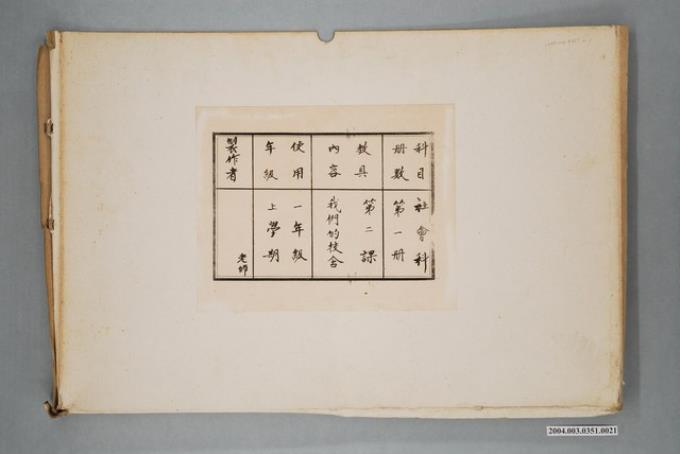 科目
社會科
冊數
第一冊
教具
第二課
內容
我們的校舍
使用
一年級
年級
上學期
製作者
老師
2004.003.0351.0021